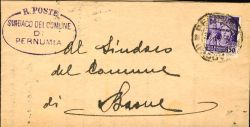 R. POSTE
SINDACO DEL COMUNE
DI
PERNUMIA
Al Sindaco
del Comune
di
50